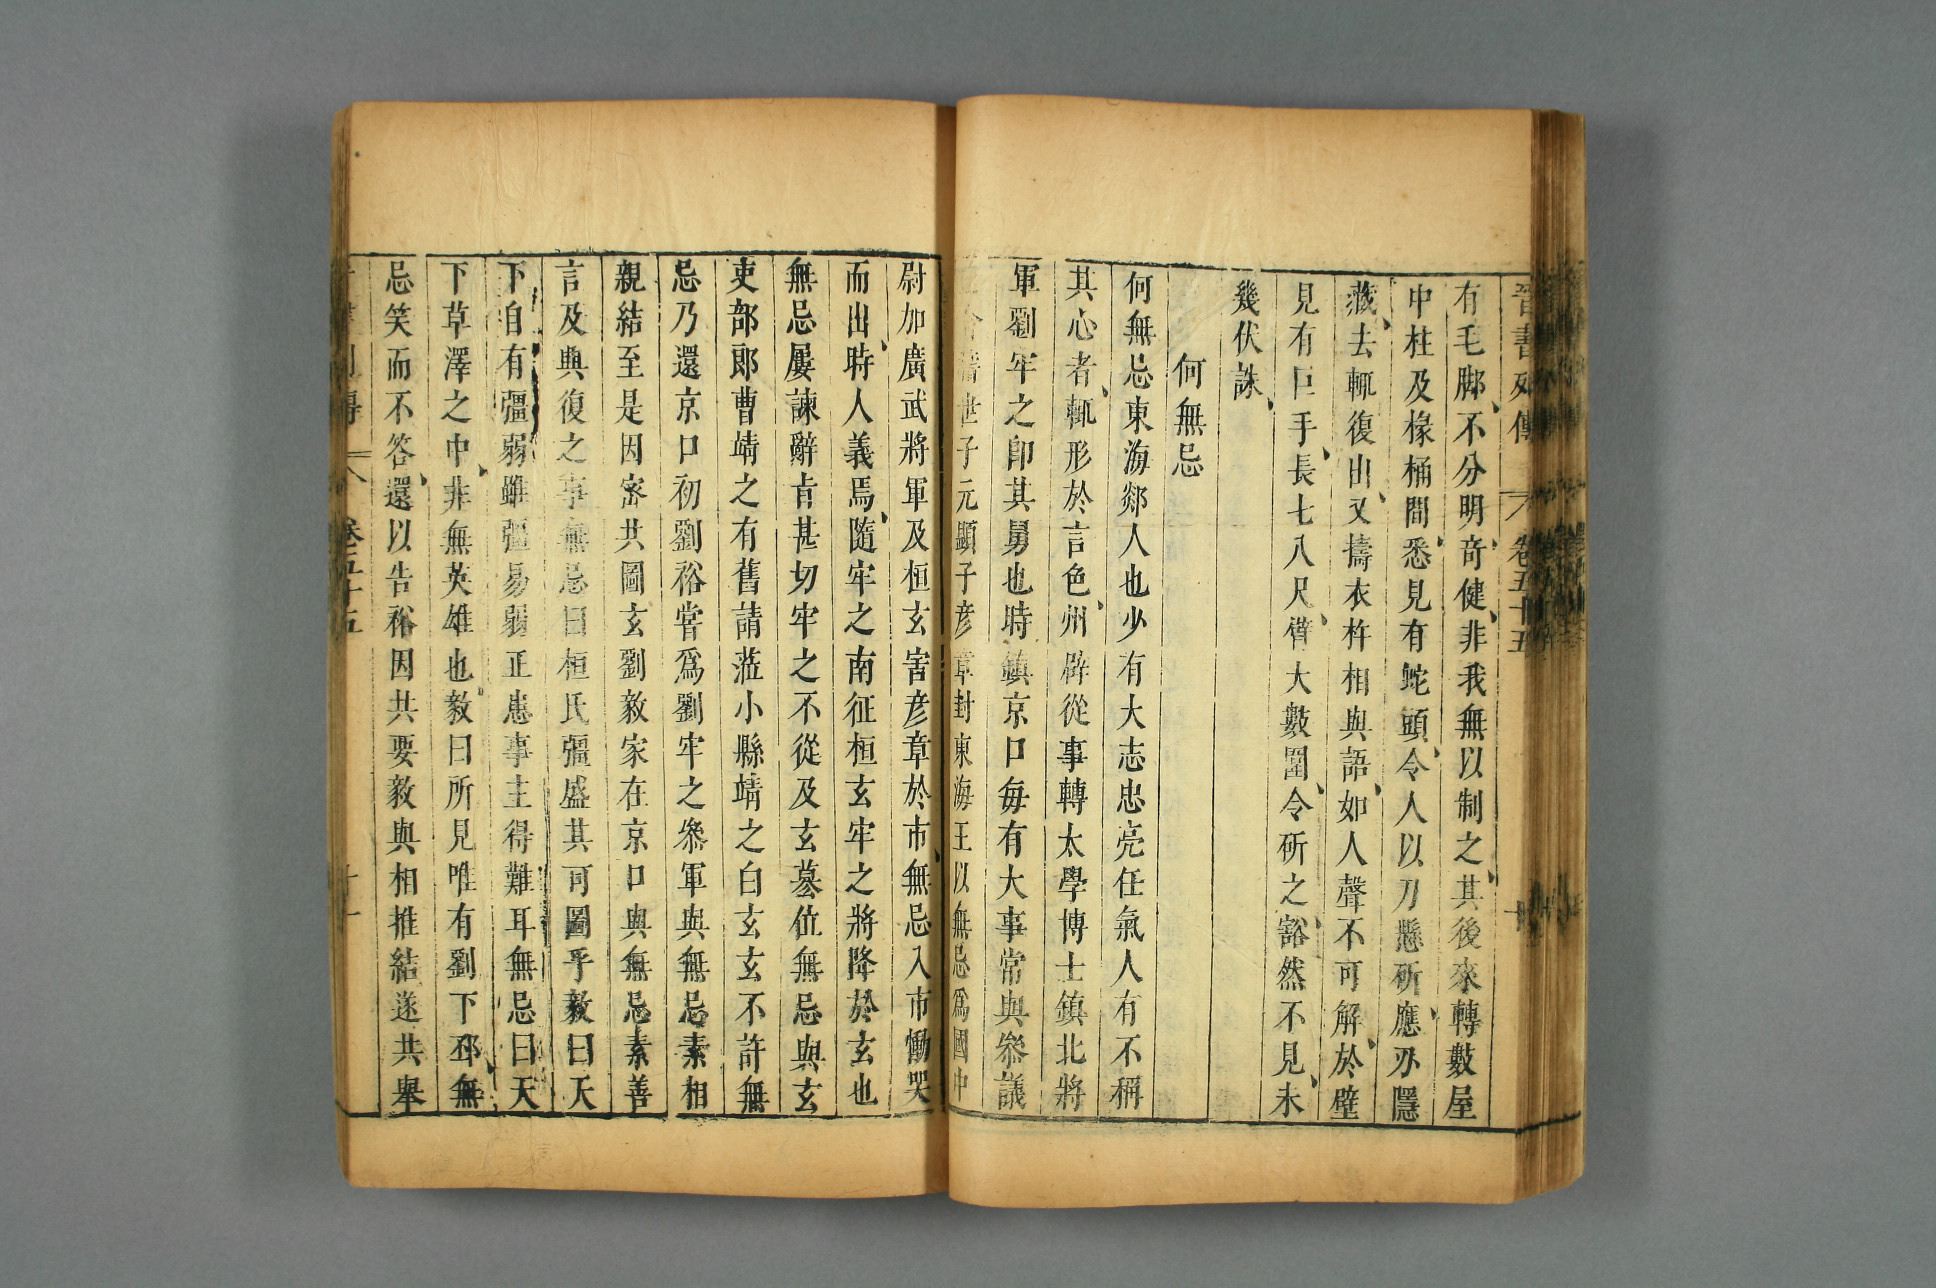 晉書列傳 卷五十五
有毛脚不分明奇健非我無以制之其後來轉數屋
中柱及椽桶間悉見有蛇頭令人以刀懸斫應刃隱
藏去輒復出又擣衣杵相與語如人聲不可解於壁
見有巨手長七八尺臂大數圍令斫之豁然不見未
幾伏誅
何無忌
何無忌東海郯人也少有大志忠亮任氣人有不稱
其心者輒形於言色州辟從事轉太學博士鎮北將
軍劉牢之卽其舅也時鎮京口每有大事常與參議
會稽世子元顯子彦章封東海王以無忌爲國中
尉加廣武將軍及桓玄害彦章於市無忌入市慟哭
而出時人義焉隨牢之南征桓玄牢之將降於玄也
無忌屢諫辭旨甚切牢之不從及玄墓位無忌與玄
吏部郎曹靖之有舊請蒞小縣靖之白玄玄不許無
忌乃還京口初劉裕嘗爲劉牢之參軍與無忌素相
親結至是因密共圖玄劉毅家在京口與無忌素善
言及興復之事無忌曰桓氏彊盛其可圖乎毅曰天
下自有彊弱雖彊易弱正患事主得難耳無忌曰天
下草澤之中非無英雄也毅曰所見唯有劉下邳無
忌笑而不答還以告裕因共要毅與相推結遂共舉
卷五十五 十一